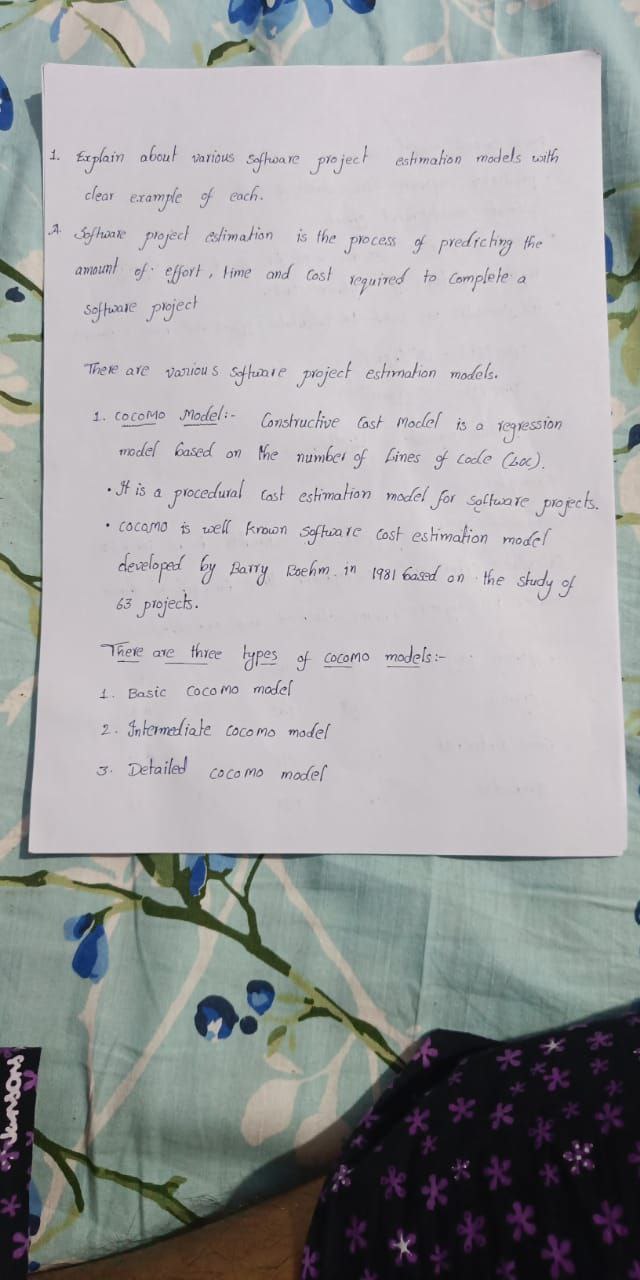 1. Explain about various software project estimation models with
clear example of each.
A. Software project estimation is the process of predicting the
amount of effort, time and cost required to complete a
software project
There are various software project estimation models.
1. COCOMO Model:- Constructive Cost Model is a regression
model based on the number of Lines of Code (LOC).
• It is a procedural cost estimation model for software projects.
• COCOMO is well known software cost estimation model
developed by Barry Boehm in 1981 based on the study of
63 projects.
There are three types of COCOMO models:-
1. Basic COCOMO model
2. Intermediate COCOMO model
3. Detailed COCOMO model